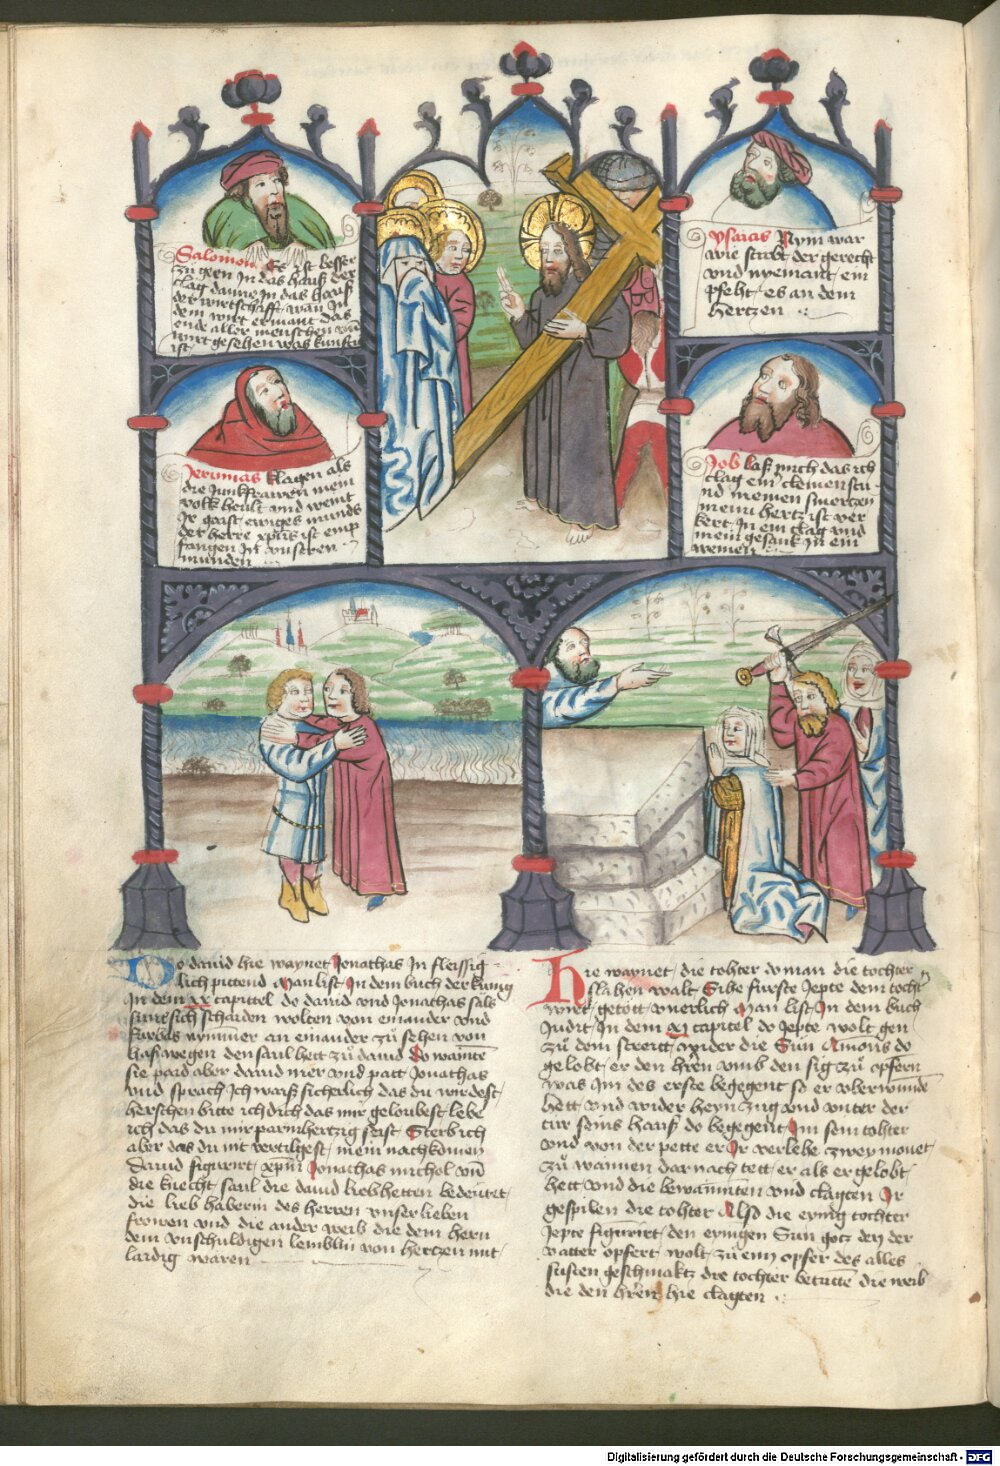 Salomon Es ist besser
zu geen In das hauß der
clag danne In das hauß
der wirtschafft wan In
dem wirt ermant das
ende aller menschen vnd
wirt gesehen was kunftig
ist
ysaias Nym war
wie stirbt der gerecht
vnd nyemant ein
pfeht es an dem
hertzen
Jeremias klagen als
die Junkfrawen mein
volk heult vnd weint
Jr gaist ewiges munds
der herre xpus ist emp
fangen In vnseren
munden
Job laß mich das ich
clag ein clein
nd meinen smertzen
mein hertz ist ver
kert In ein clag vnd
mein gesank In ein
weinen
Do dauid hie waynet Jonathas In fleissig
lich pittend Man list In dem buch der kunig
In dem xx capitel do dauid vnd Jonathas
sich schaiden wolten von einander vnd
furbas nymmer an einander zu sehen von
haß wegen den saul hett zu dauid Do wainte
sie paid aber dauid mer vnd patt Jonathas
vnd sprach Ich waiß sicherlich das du wirdest
herschen bitte ich dich das mir geloubest lebe
ich das du mir parmhertzig seist Sterb ich
aber das du nit vertilgest mein nachkomen
Dauid figurirt xpm Jonathas michol vnd
die knecht saul die dauid lieb hetten bedeutet
die lieb haberin des herren vnser lieben
frowen vnd die ander weib die dem hern
dem vnschuldigen lemblin von hertzen mit
lardig waren
Hie waynet die tohter do man die tochter
slahen walt Sihe furste Jepte dem tocht
wirt getott Man list In dem buch
Judit In dem xj capitel do Jepte wolt gen
zu dem streitt wider die Sun Amons do
gelobt er den hren vmb den sig zu opfern
was Im des erste begegent so er vberwunde
hett vnd wider heym zug vnd vnter der
tur seins hauß do begegent Im sein tohter
vnd von der pette er Ir verlebe zwey monet
zu wainen dar nach tett er als er gelobt
hett vnd die bewainten vnd clagten Ir
gespilen die tohter Also die eynig tochter
Jepte figurirt den eynigen Sun gotz den der
vatter opfert wolt zu eim opfer des alles
susten geschmakz die tochter betutte die weib
die den hren hie clagten
Digitalisierung gefördert durch die Deutsche Forschungsgemeinschaft - DFG